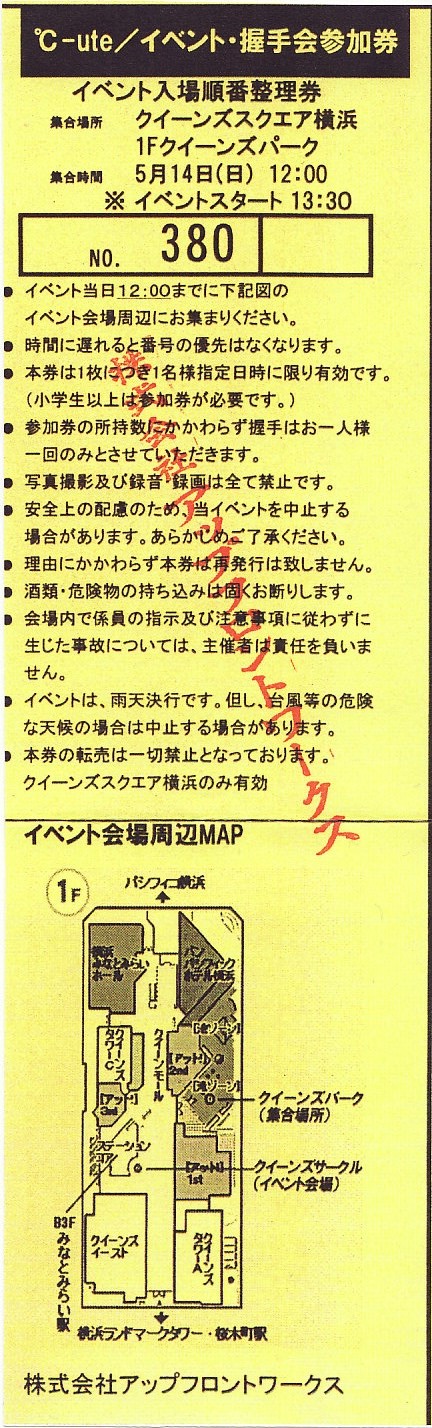 ℃-ute／イベント・握手会参加券
イベント入場順番整理券
集合場所 クイーンズスクエア横浜
1Fクイーンズパーク
集合時間 5月14日(日) 12:00
※ イベントスタート 13:30
NO. 380
● イベント当日12:00までに下記図の
イベント会場周辺にお集まりください。
● 時間に遅れると番号の優先はなくなります。
● 本券は1枚につき1名様指定日時に限り有効です。
（小学生以上は参加券が必要です。）
● 参加券の所持数にかかわらず握手はお一人様
一回のみとさせていただきます。
● 写真撮影及び録音 録画は全て禁止です。
● 安全上の配慮のため、当イベントを中止する
場合があります。あらかじめご了承ください。
● 理由にかかわらず本券は再発行は致しません。
● 酒類・危険物の持ち込みは固くお断りします。
● 会場内で係員の指示及び注意事項に従わずに
生じた事故については、主催者は責任を負いま
せん。
● イベントは、雨天決行です。但し、台風等の危険
な天候の場合は中止する場合があります。
● 本券の転売は一切禁止となっております。
クイーンズスクエア横浜のみ有効
株式会社アップフロントワークス
イベント会場周辺MAP
1F
パシフィコ横浜
横浜
みなとみらい
ホール
パン
パシフィック
ホテル横浜
クイーンズ
タワーC
クイーンモール
[アット!]
2nd
[アット!]
3rd
クイーンズパーク
(集合場所)
ステーション
コア
[アット!]
1st
クイーンズサークル
(イベント会場)
B3F
みなとみらい駅
クイーンズ
イースト
クイーンズ
タワーA
横浜ランドマークタワー・桜木町駅
株式会社アップフロントワークス